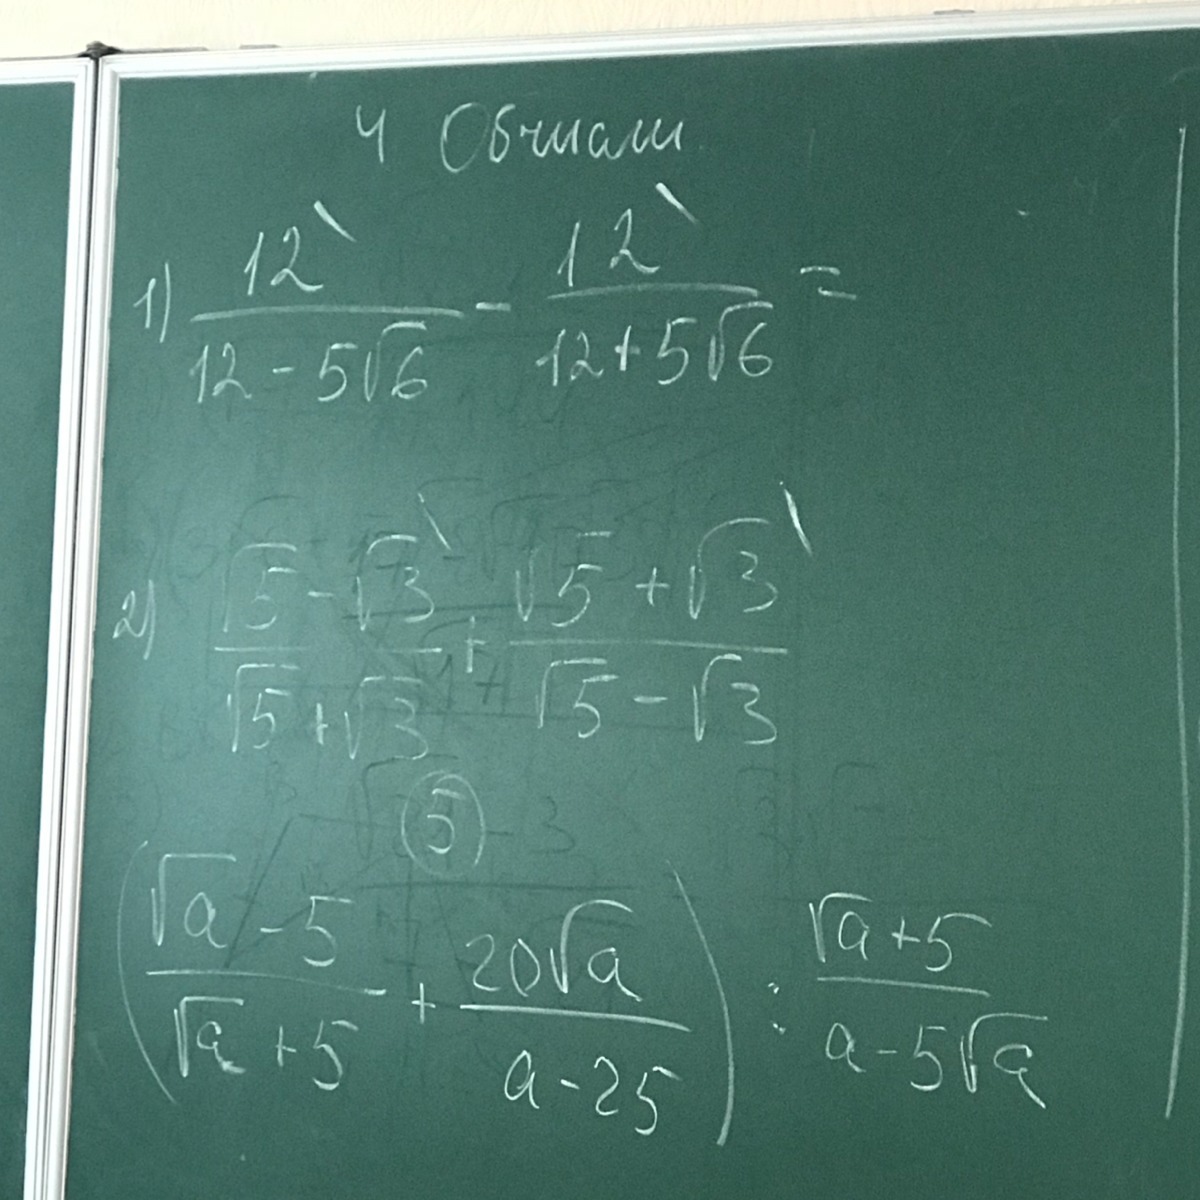 4 Обчисли
1) 12/(12 - 5√6) - 12/(12 + 5√6) =
2) (√5 - √3)/(√5 + √3) + (√5 + √3)/(√5 - √3)
5
((√a - 5)/(√a + 5) + 20√a/(a - 25)) : (√a + 5)/(a - 5√a)